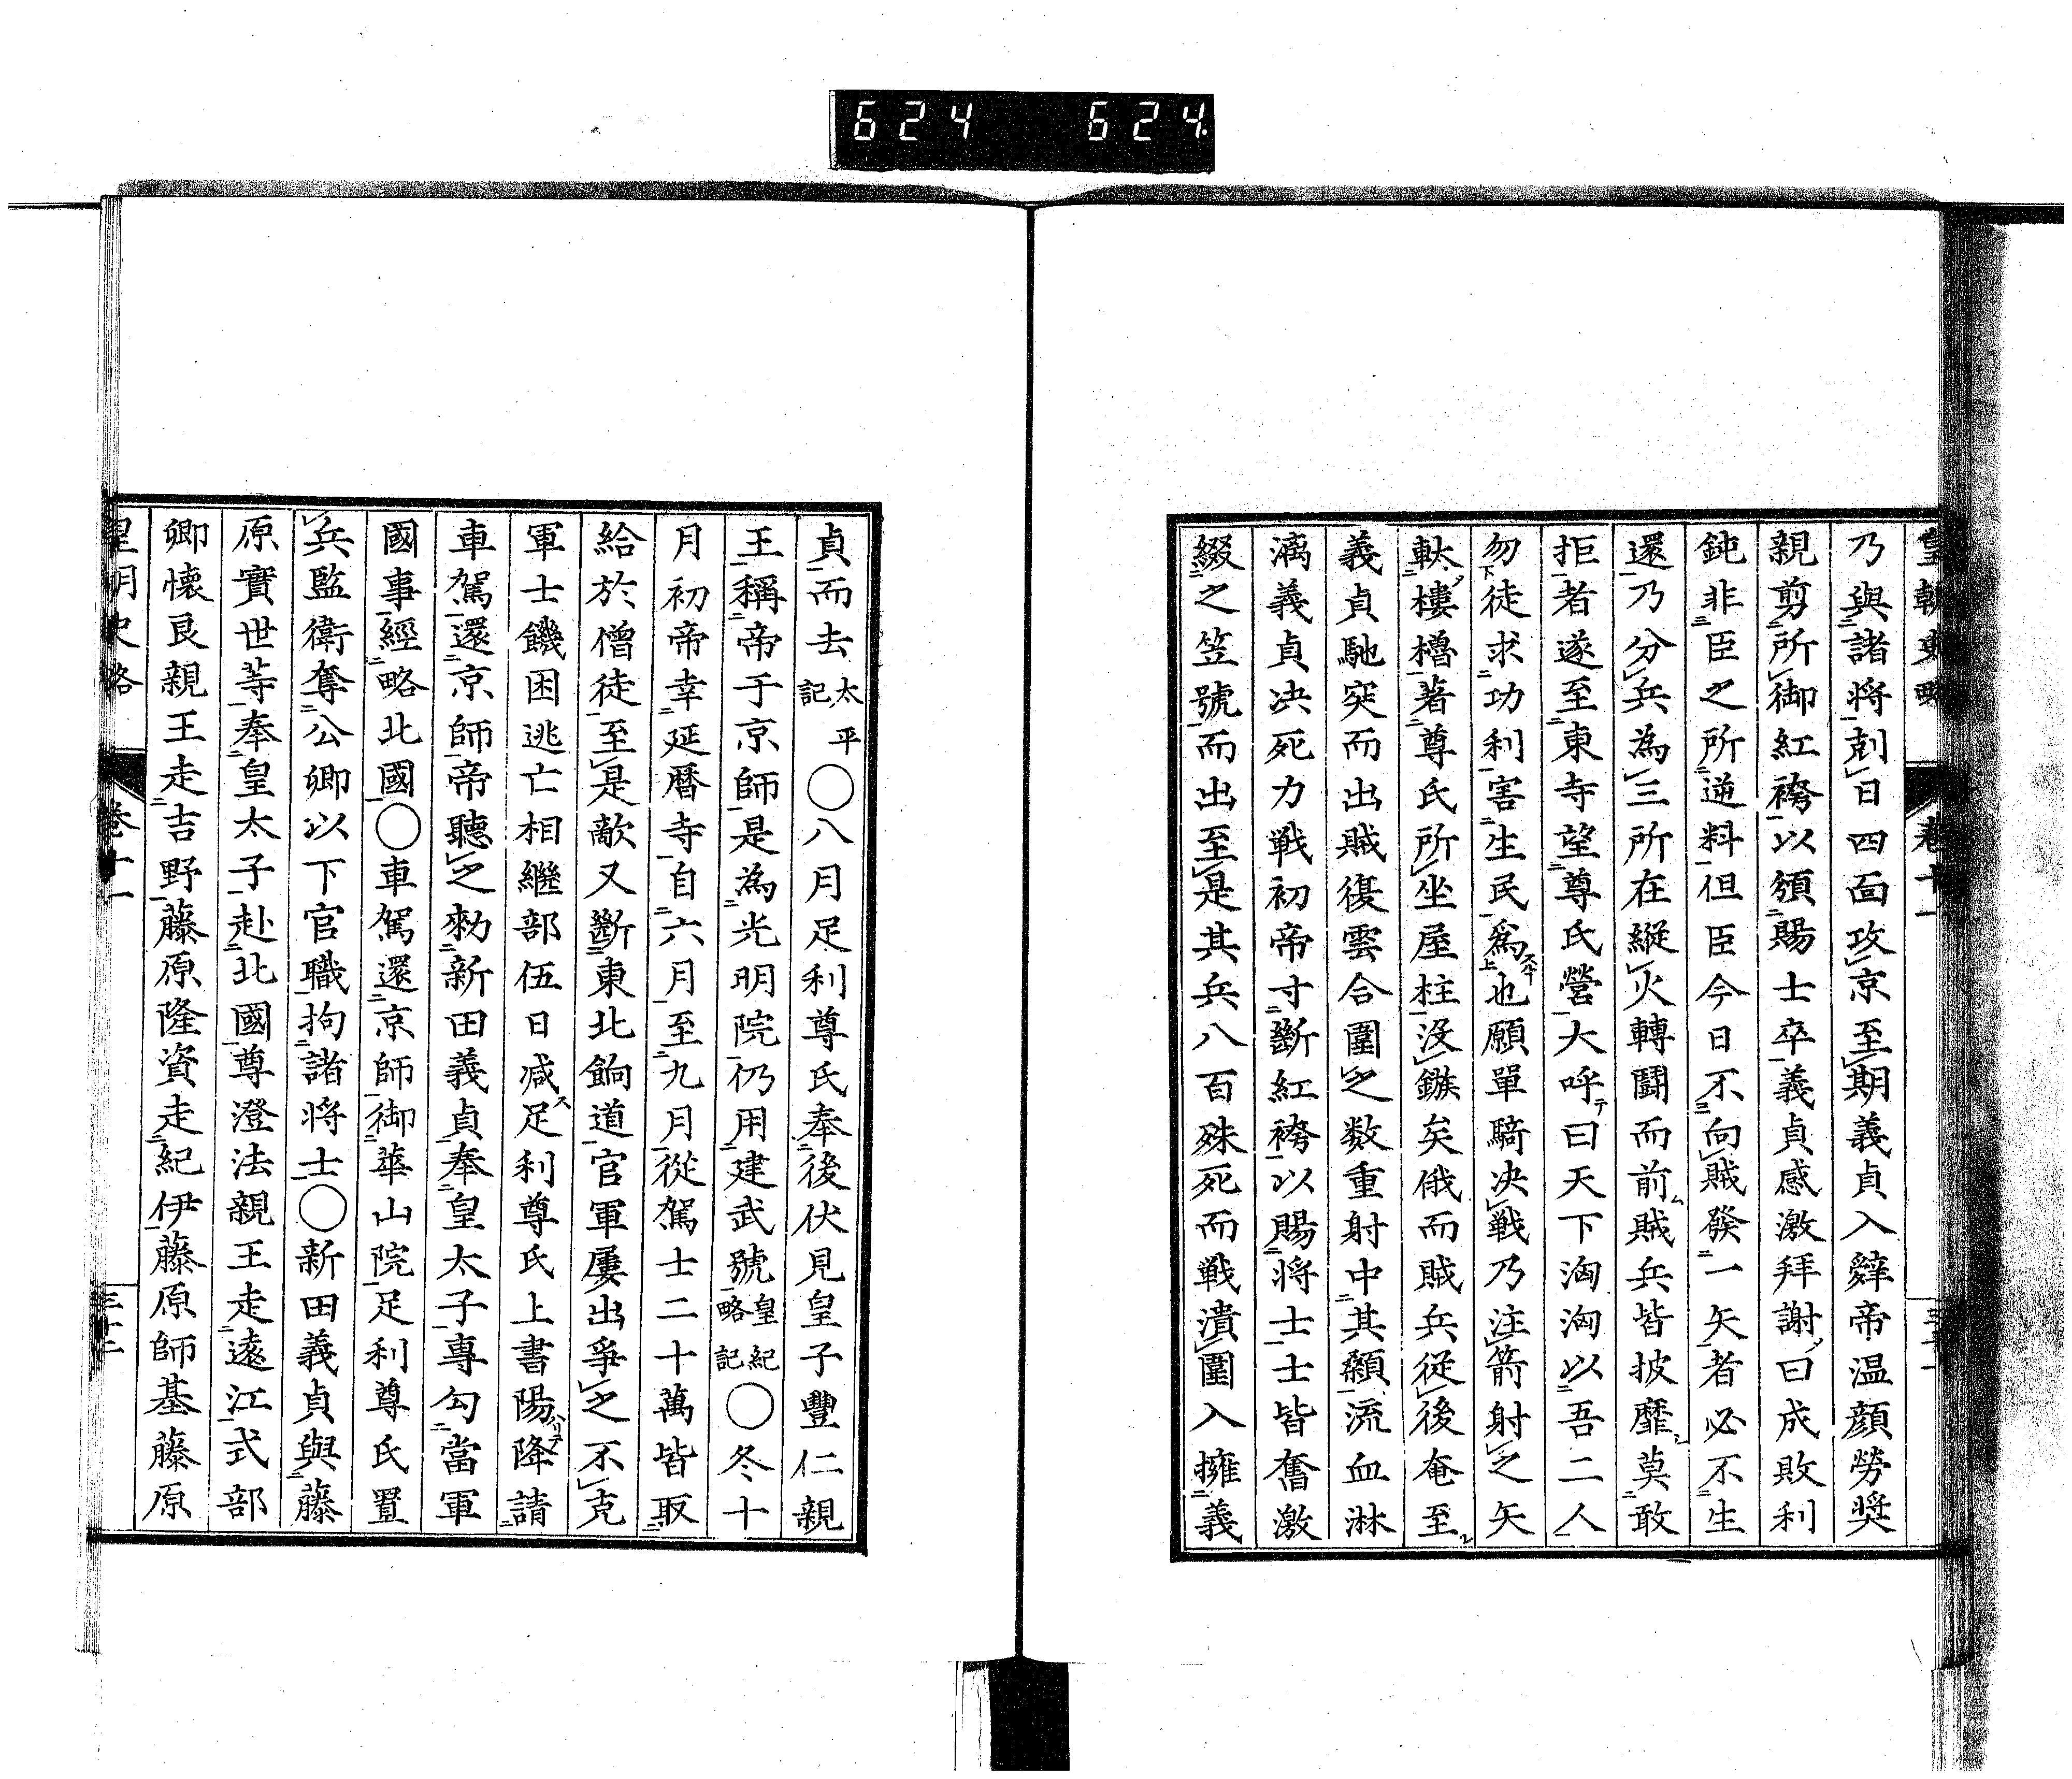 624 624.
皇朝史略 卷十一
乃與諸将刻日四面攻京至期義貞入辭帝温顔勞奨
親剪所御紅袴以頒賜士卒義貞感激拜謝曰成敗利
鈍非臣之所逆料但臣今日不向賊發一矢者必不生
還乃分兵為三所在縱火轉鬪而前賊兵皆披靡莫敢
拒者遂至東寺望尊氏營大呼曰天下洶洶以吾二人
勿徒求功利害生民爲也願單騎决戦乃注箭射之矢
軼樓櫓著尊氏所坐屋柱沒鏃矣俄而賊兵從後奄至
義貞馳突而出賊復雲合圍之数重射中其額流血淋
漓義貞决死力戦初帝寸斷紅袴以賜将士士皆奮激
綴之笠號而出至是其兵八百殊死而戦潰圍入擁義
貞而去太平記〇八月足利尊氏奉後伏見皇子豐仁親
王稱帝于京師是為光明院仍用建武號皇紀略記〇冬十
月初帝幸延暦寺自六月至九月從駕士二十萬皆取
給於僧徒至是敵又斷東北餉道官軍屢出爭之不克
軍士饑困逃亡相繼部伍日减足利尊氏上書陽降請
車駕還京師帝聽之勑新田義貞奉皇太子專勾當軍
國事經略北國〇車駕還京師御華山院足利尊氏置
兵監衛奪公卿以下官職拘諸将士〇新田義貞與藤
原實世等奉皇太子赴北國尊澄法親王走遠江式部
卿懷良親王走吉野藤原隆資走紀伊藤原師基藤原
皇朝史略 卷十一 三十二